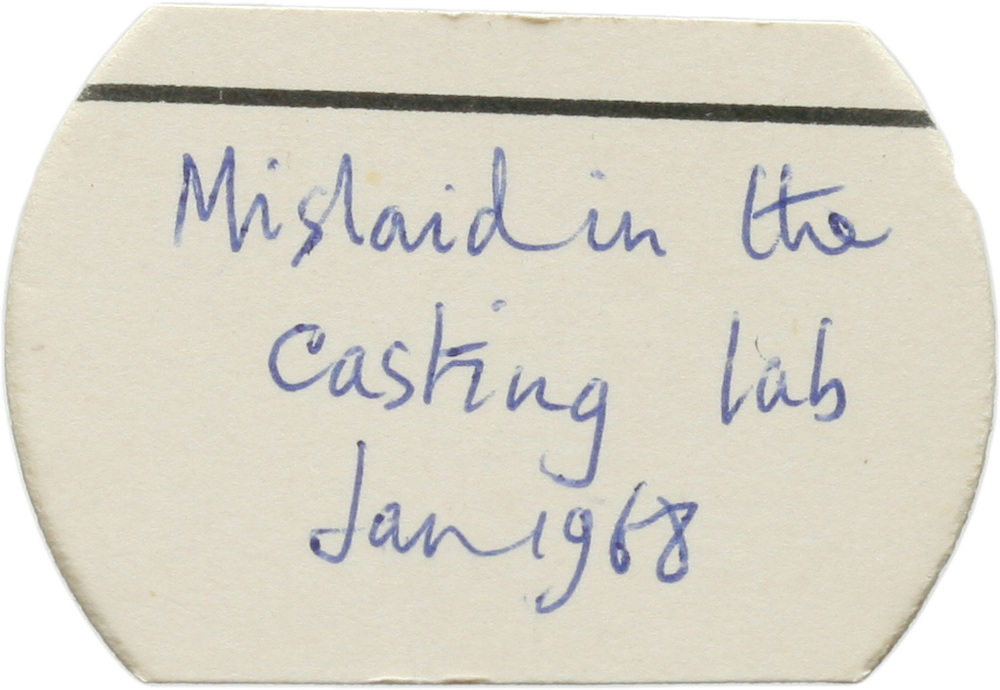 Mislaid in the
Casting lab
Jan 1968